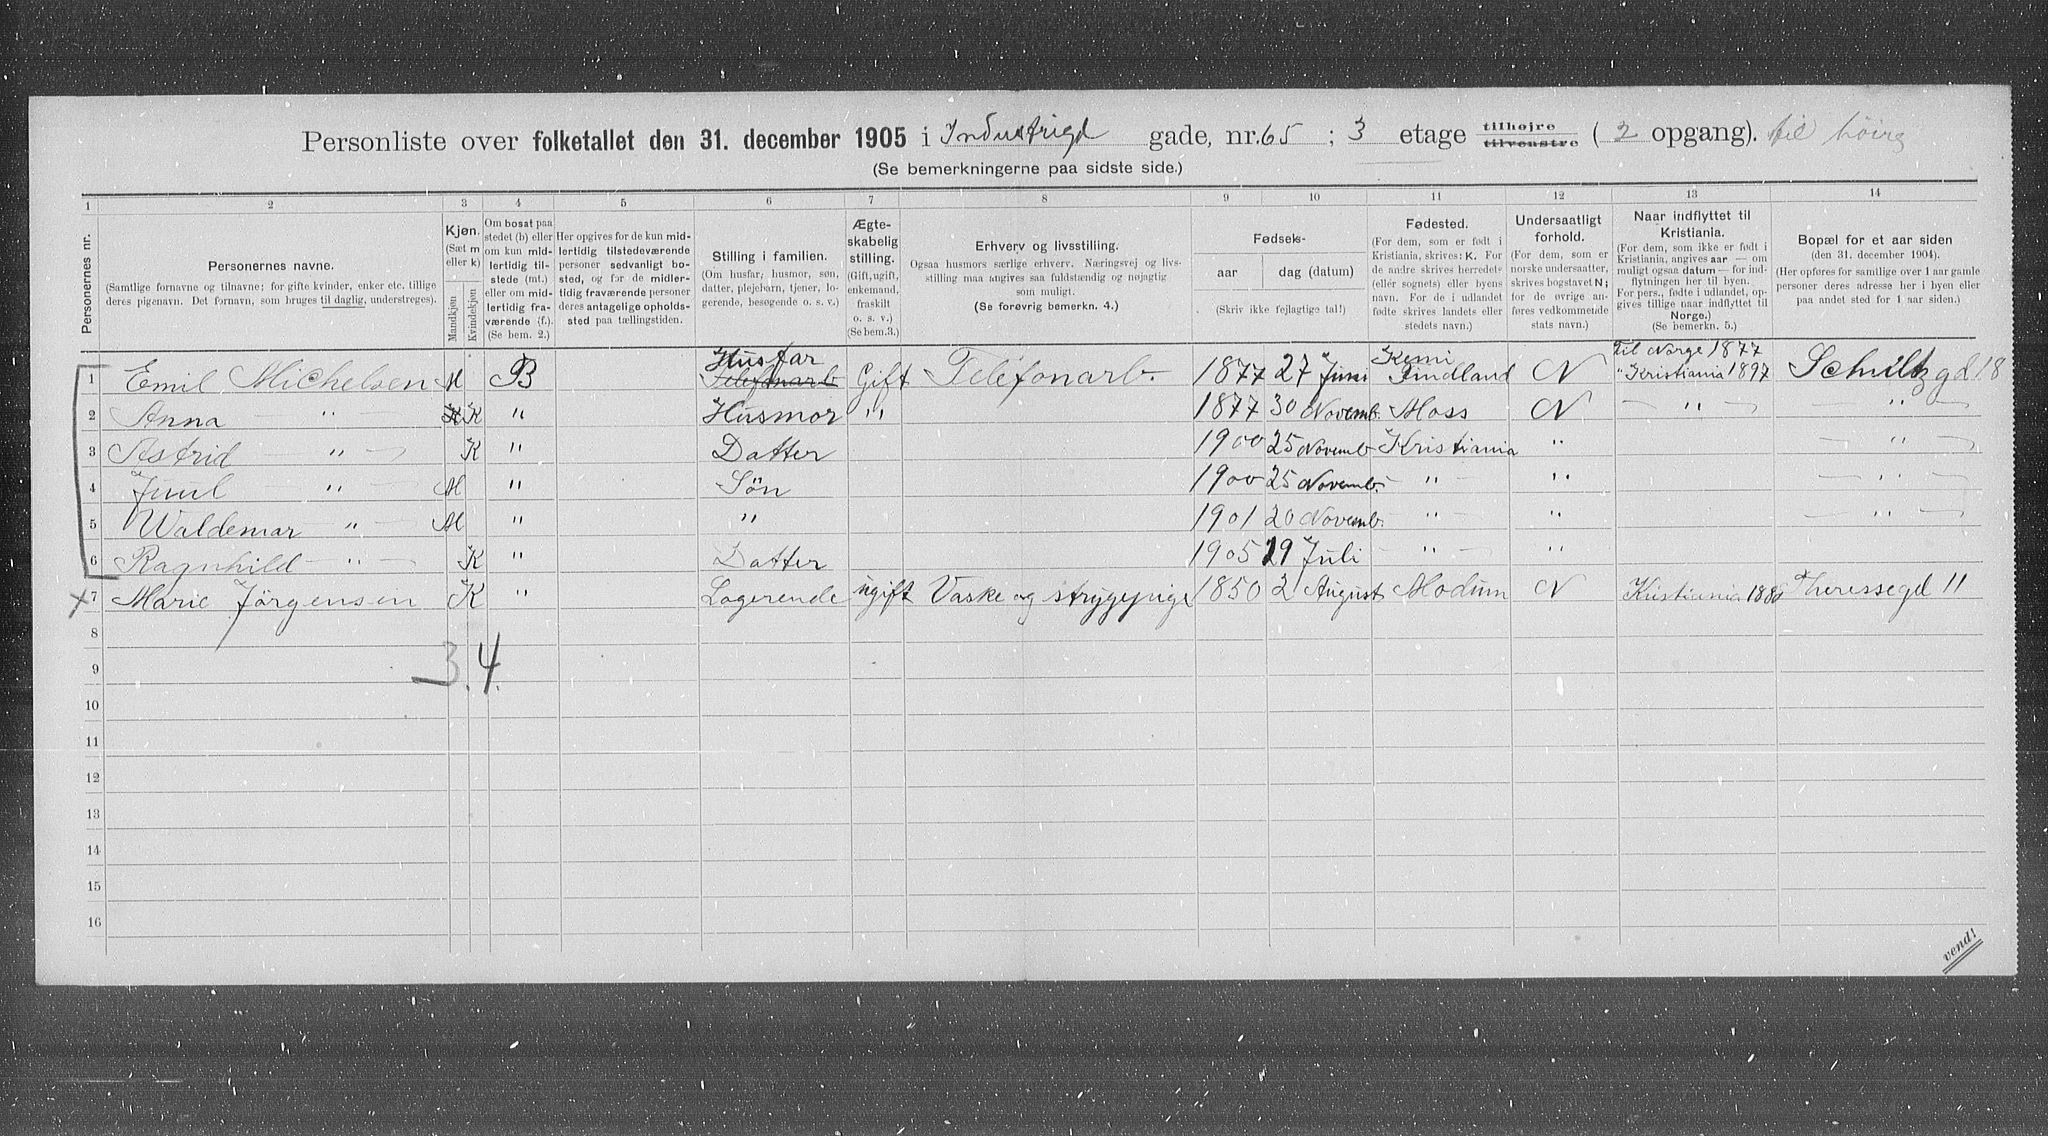 Personliste over folketallet den 31. december 1905 i Industrigd gade, nr. 65 ; 3 etage tilhøjre tilvenstre ( 2 opgang). til höire
(Se bemerkningerne paa sidste side.)
1 2 3 4 5 6 7 8 9 10 11 12 13 14
Personernes nr.
Personernes navne.
(Samtlige fornavne og tilnavne; for gifte kvinder, enker etc. tillige deres pigenavn. Det fornavn, som bruges til daglig, understreges).
Kjøn.
(Sæt m eller k)
Mandkjøn
Kvindekjøn
Om bosat paa stedet (b) eller om kun midlertidig tilstede (mt.) eller om midlertidig fraværende (f.). (Se bem. 2.)
Her opgives for de kun midlertidig tilstedeværende personer sedvanligt bosted, og for de midlertidig fraværende personer deres antagelige opholdssted paa tællingstiden.
Stilling i familien.
(Om husfar, husmor, søn, datter, plejebarn, tjener, logerende, besøgende o. s. v.)
Ægteskabelig stilling.
(Gift, ugift, enkemand, fraskilt o. s. v.) (Se bem. 3.)
Erhverv og livsstilling.
Ogsaa husmors særlige erhverv. Næringsvej og livsstilling maa angives saa fuldstændig og nøjagtig som muligt.
(Se forøvrig bemerkn. 4.)
Fødsels-
aar dag (datum)
(Skriv ikke fejlagtige tal!)
Fødested.
(For dem, som er født i Kristiania, skrives: K. For de andre skrives herredets (eller sognets) eller byens navn. For de i udlandet fødte skrives landets eller stedets navn.)
Undersaatligt forhold.
(For dem, som er norske undersaatter, skrives bogstavet N; for de øvrige anføres vedkommende stats navn.)
Naar indflyttet til Kristiania.
(For dem, som ikke er født i Kristiania, angives aar — om muligt ogsaa datum — for indflytningen her til byen. For pers., fødte i udlandet, opgives tillige naar indflyttet til Norge.)
(Se bemerkn. 5.)
Bopæl for et aar siden
(den 31. december 1904).
(Her opføres for samtlige over 1 aar gamle personer deres adresse her i byen eller paa andet sted for 1 aar siden.)
1 Emil Michelsen M B Husfar Telefonarb Gift Telefonarb. 1877 27 Juni Kemi Findland N Til Norge 1877 " Kristiania 1897 Schultzgd 18
2 Anna — " — K " Husmor " 1877 30 Novemb. Moss N — " — — " —
3 Astrid — " — K " Datter 1900 25 Novemb Kristiania " — " —
4 Juul " M " Søn 1900 25 Novemb. — " — " — " —
5 Waldemar — " — M " " 1901 20 Novemb. — " — " — " —
6 Ragnhild — " — K " Datter 1905 29 Juli — " — "
x 7 Marie Jörgensen K " Logerende ugift Vaske og strygepige 1850 2 August Modum N Theressegd 11
8
9 3. 4.
10
11
12
13
14
15
16
vend!